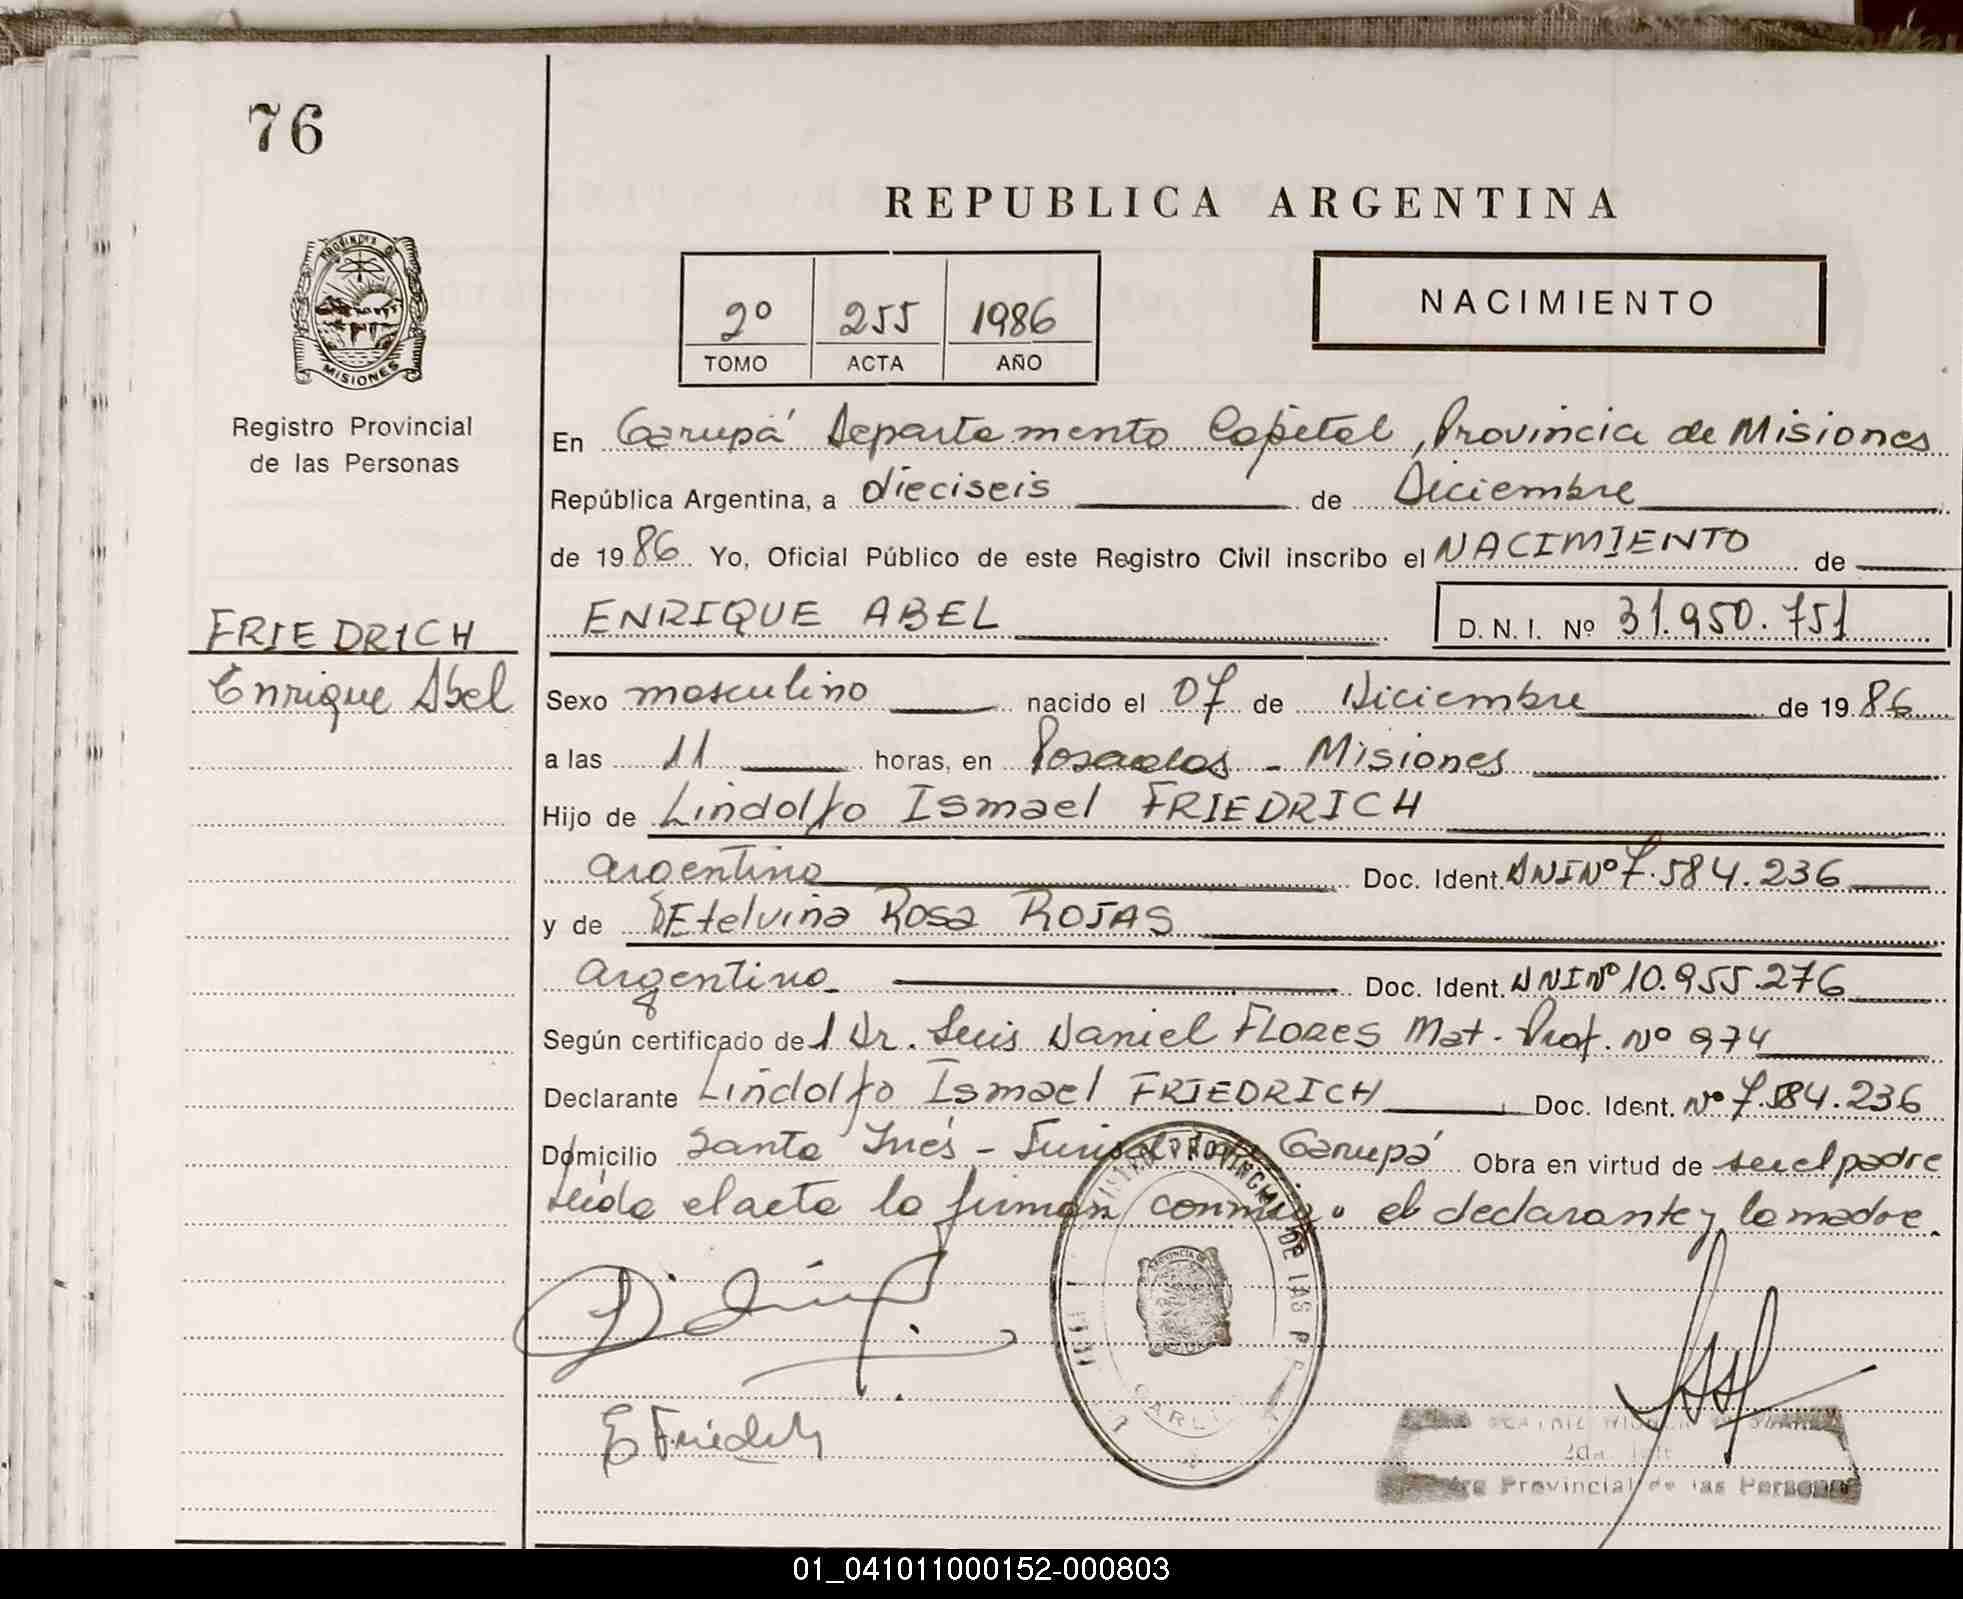 76
REPUBLICA ARGENTINA
PROVINCIA DE
MISIONES
2º 255 1986
TOMO ACTA AÑO
NACIMIENTO
Registro Provincial
de las Personas
En Garupá Departamento Capital, Provincia de Misiones
República Argentina, a dieciseis de Diciembre
de 1986 Yo, Oficial Público de este Registro Civil inscribo el NACIMIENTO de
ENRIQUE ABEL D.N.I. Nº 31.950.751
FRIEDRICH
Enrique Abel
Sexo masculino nacido el 07 de Diciembre de 1986
a las 11 horas, en Posadas - Misiones
Hijo de Lindolfo Ismael FRIEDRICH
argentino Doc. Ident. DNI Nº 7.584.236
y de Etelvina Rosa ROJAS
argentina Doc. Ident. DNI Nº 10.955.276
Según certificado del Dr. Luis Daniel FLORES Mat. Prof. Nº 974
Declarante Lindolfo Ismael FRIEDRICH Doc. Ident. Nº 7.584.236
Domicilio Santa Inés - Garupá Obra en virtud de ser el padre
Leída el acta la firman conmigo el declarante y la madre.
PROVINCIAL DE LAS
E Friedrich
Provincial de las Personas
01_041011000152-000803